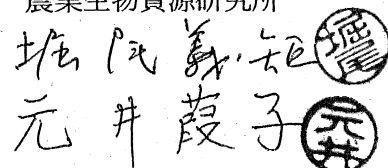 農業生物資源研究所
堀尾義矩 堀尾
元井葭子 元井